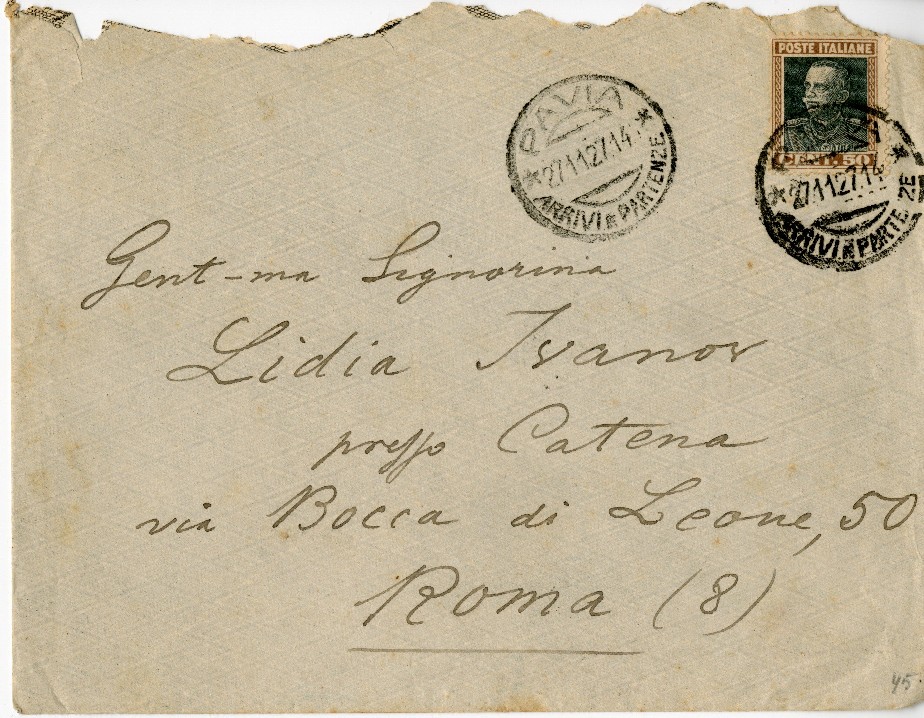 POSTE ITALIANE
CENT. 50
PAVIA
27.11.27.14
ARRIVI E PARTENZE
27.11.27.14
ARRIVI E PARTENZE
Gent-ma Signorina
Lidia Ivanov
presso Catena
via Bocca di Leone, 50
Roma (8)
45